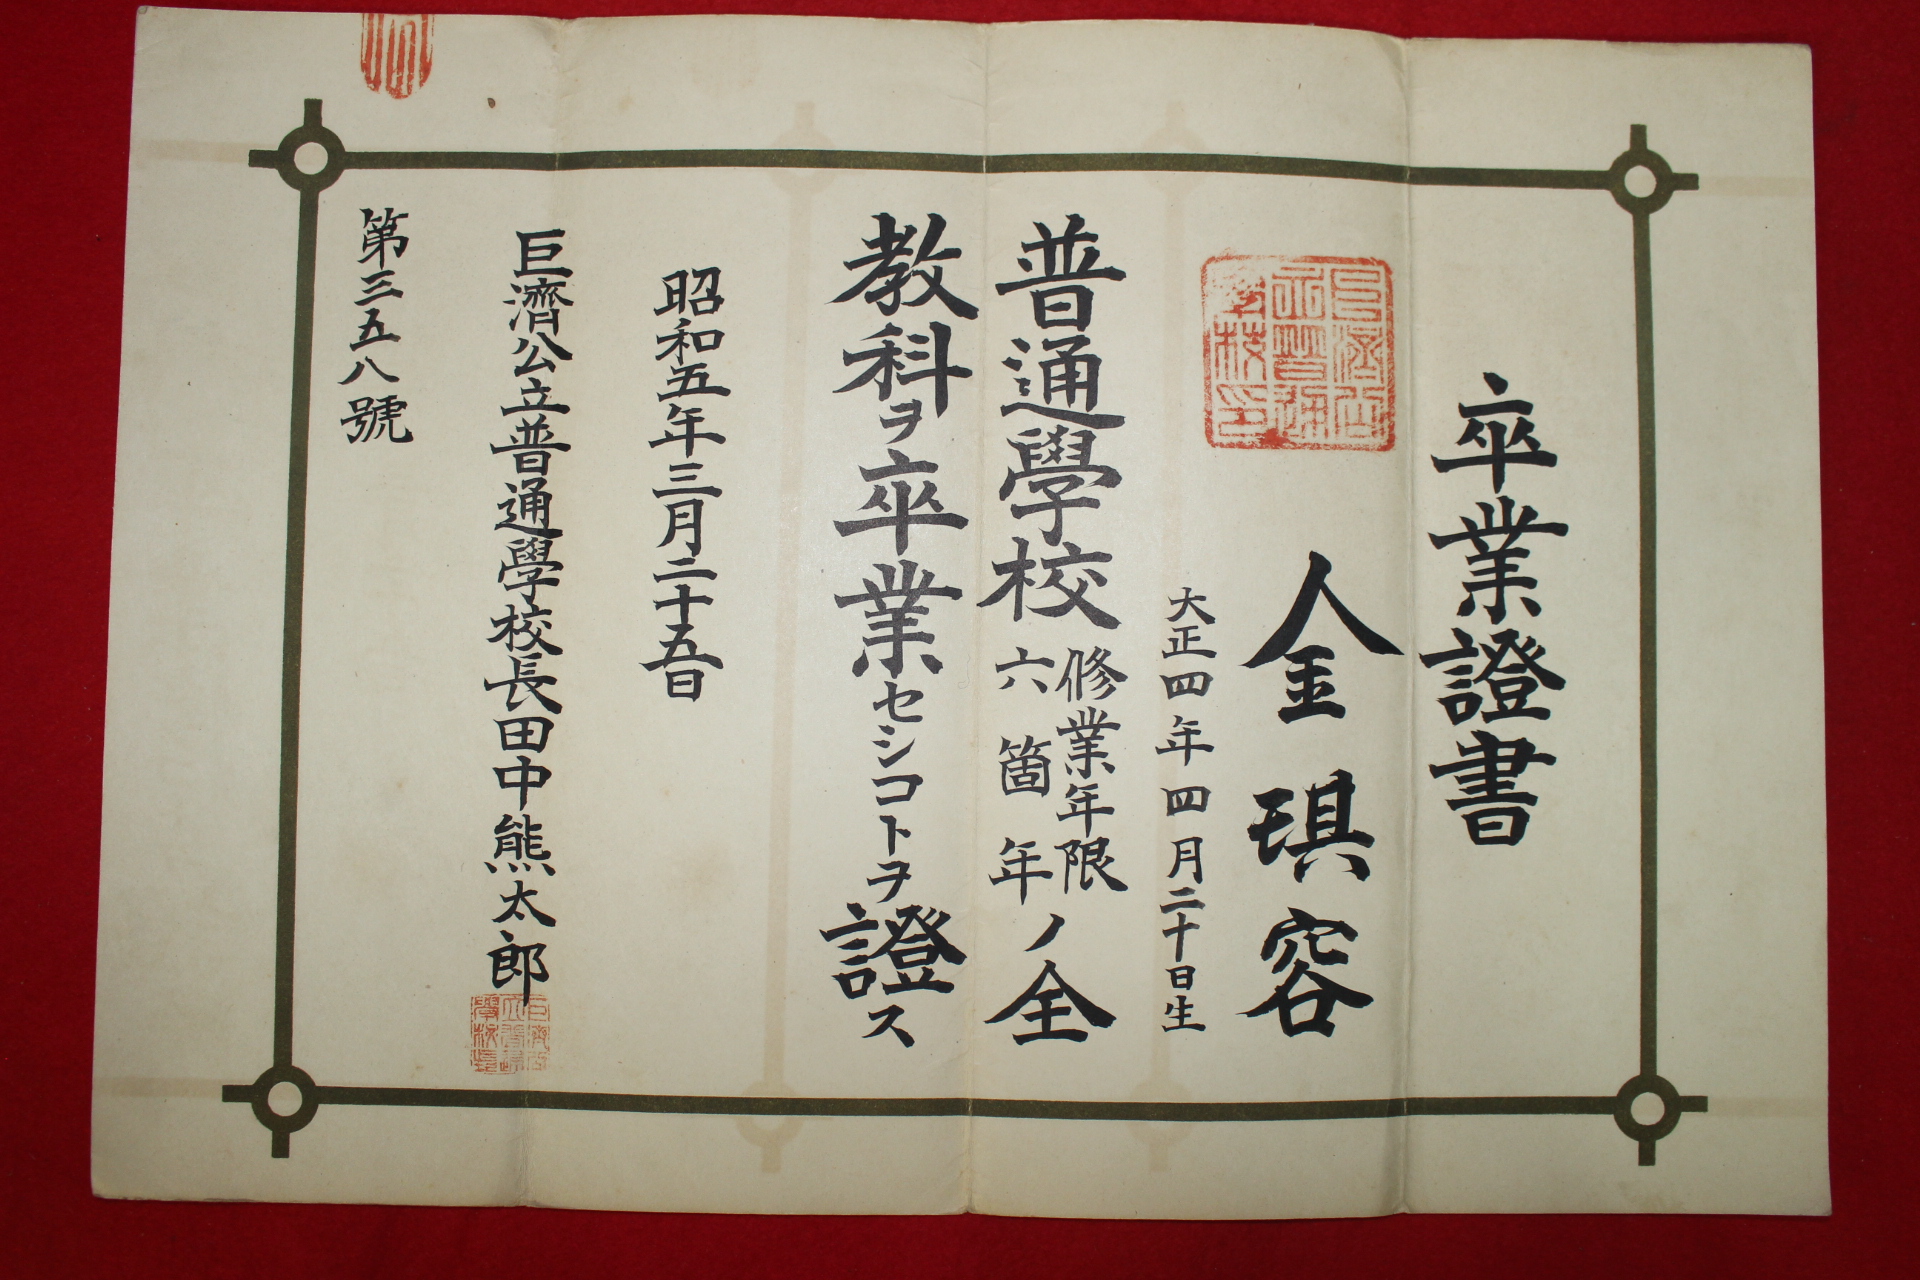 卒業證書
金琪容
大正四年四月二十日生
普通學校修業年限六箇年ノ全
教科ヲ卒業セシコトヲ證ス
昭和五年三月二十五日
巨濟公立普通學校長田中熊太郎
第三五八號
巨濟公立普通學校印